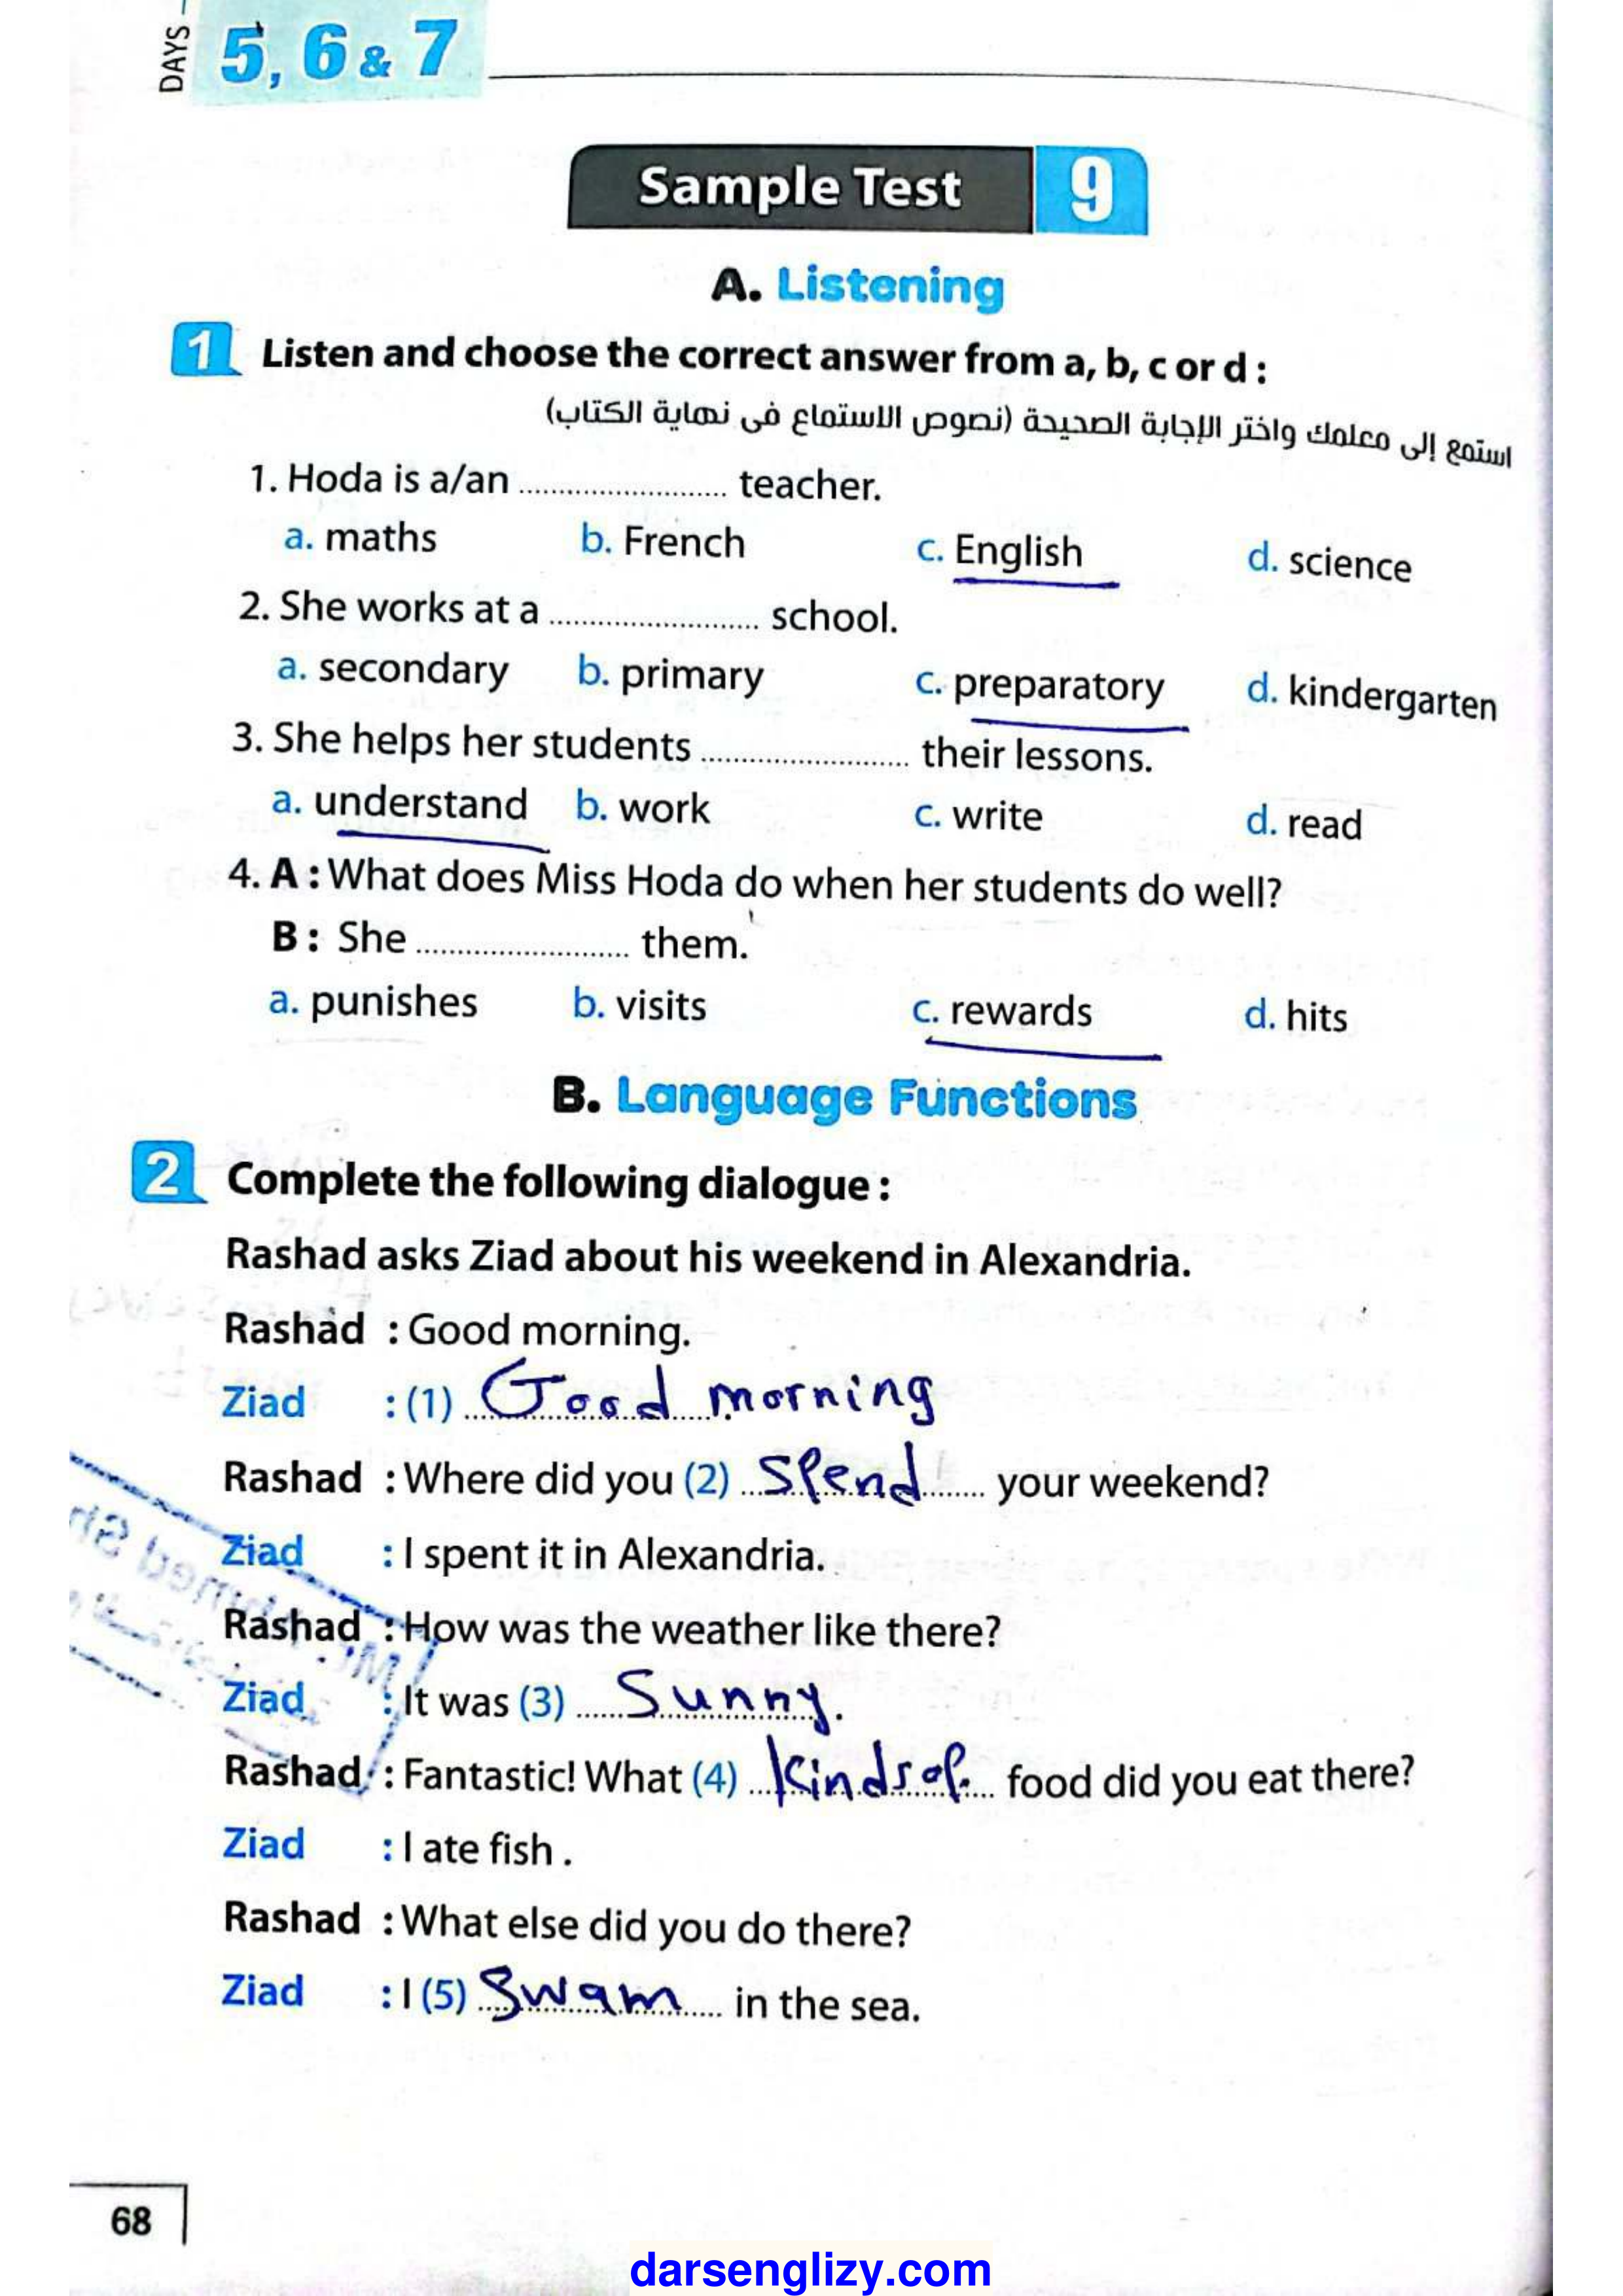 DAYS
5, 6 & 7
Sample Test 9
A. Listening
1 Listen and choose the correct answer from a, b, c or d :
استمع إلى معلمك واختر الإجابة الصحيحة (نصوص الاستماع فى نهاية الكتاب)
1. Hoda is a/an ........................ teacher.
a. maths b. French c. English d. science
2. She works at a ........................ school.
a. secondary b. primary c. preparatory d. kindergarten
3. She helps her students ........................ their lessons.
a. understand b. work c. write d. read
4. A : What does Miss Hoda do when her students do well?
B : She ........................ them.
a. punishes b. visits c. rewards d. hits
B. Language Functions
2 Complete the following dialogue :
Rashad asks Ziad about his weekend in Alexandria.
Rashad : Good morning.
Ziad : (1) Good morning
Rashad : Where did you (2) Spend your weekend?
Ziad : I spent it in Alexandria.
Rashad : How was the weather like there?
Ziad : It was (3) Sunny.
Rashad : Fantastic! What (4) Kinds of food did you eat there?
Ziad : I ate fish .
Rashad : What else did you do there?
Ziad : I (5) Swam in the sea.
68
darsenglizy.com